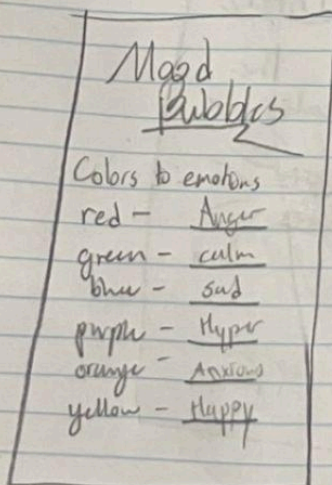 Mood
Bubbles
Colors to emotions
red - Anger
green - calm
blue - sad
purple - Hyper
orange - Anxious
yellow - Happy